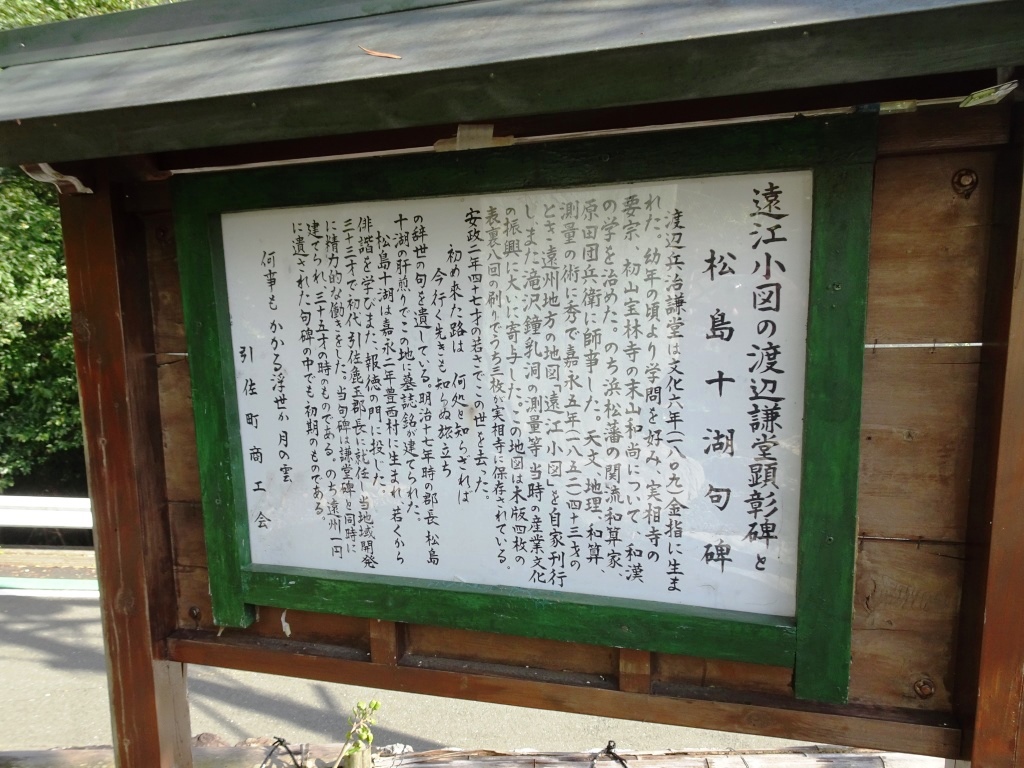 遠江小図の渡辺謙堂顕彰碑と
松島十湖句碑
渡辺兵治謙堂は文化六年(一八〇九)金指に生ま
れた。幼年の頃より学問を好み、実相寺の
要宗、初山宝林寺の末山和尚について、和漢
の学を治めた。のち浜松藩の関流和算家、
原田団兵衛に師事した。天文、地理、和算、
測量の術に秀で嘉永五年(一八五二)四十三才の
とき、遠州地方の地図「遠江小図」を自家刊行
し、また滝沢鐘乳洞の測量等当時の産業文化
の振興に大いに寄与した。この地図は木版四枚の
表裏八回の刷りでうち三枚が実相寺に保存されている。
安政二年四十七才の若さでこの世を去った。
初め来た路は 何処と知らざれば
今行く先きも知らぬ旅立ち
の辞世の句を遺している。明治十七年時の郡長松島
十湖の肝煎りでこの地に墓誌銘が建てられた。
松島十湖は嘉永二年豊西村に生まれ若くから
俳諧を学びまた、報徳の門に投じた。
三十三才で初代引佐麁玉郡長に就任し当地域開発
に精力的な働きをした。当句碑は謙堂碑と同時に
建てられ、三十五才の時のものである。のち遠州一円
に遺された句碑の中でも初期のものである。
何事も かかる浮世か 月の雲
引佐町商工会